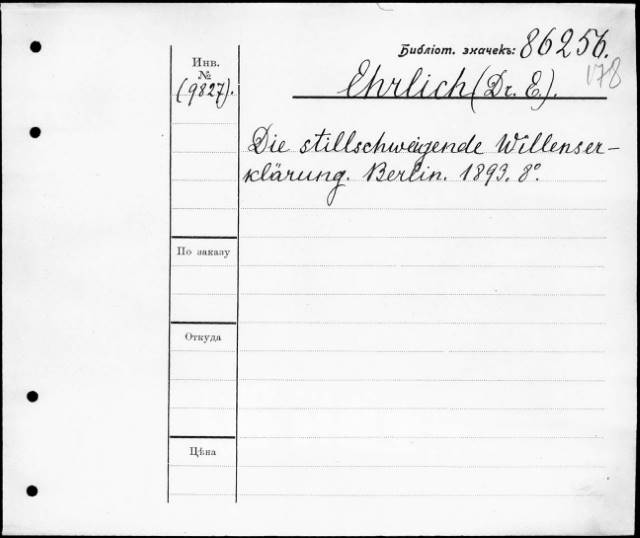 Библіот. значекъ: 86256.
178
Инв.
№
(9827).
Ehrlich (Dr. E.).
Die stillschweigende Willenser-
klärung. Berlin. 1893. 8°.
По заказу
Откуда
Цѣна